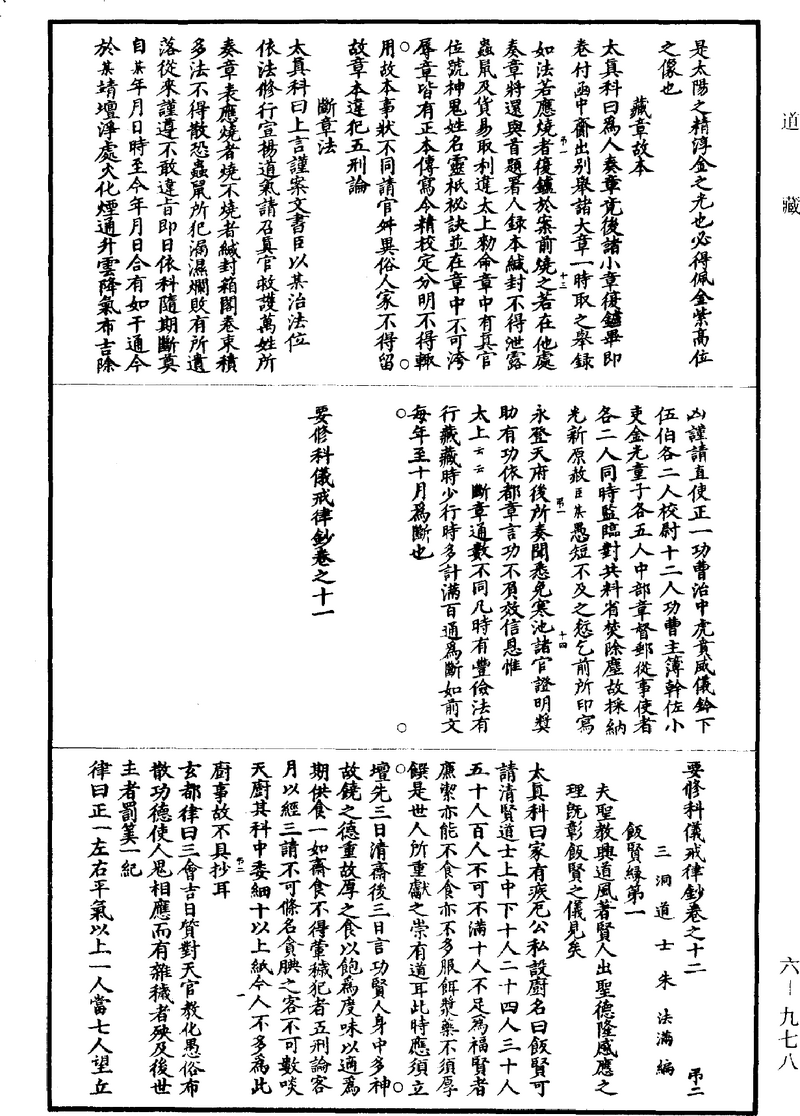 道藏
是太陽之精淳金之光也必得佩金紫高位
之像也
藏章故本
太真科曰為人奏章竟後諸小章復鑪畢即
卷付函中齎出別舉諸大章一時取之舉錄
如法若應燒者復鑪於案前燒之若在他處
奏章將還與首題署人錄本緘封不得泄露
蟲鼠及貨易取利違太上勑命章中有真官
位號神鬼姓名靈祇祕訣並在章中不可洿
辱章皆有正本傳寫今精校定分明不得輙
用故本事狀不同請官舛異俗人家不得留
故章本違犯五刑論
斷章法
太真科曰上言謹案文書臣以某治法位
依法修行宣楊道氣請召真官救護萬姓所
奏章表應燒者燒不燒者緘封箱閣卷束積
多法不得散恐蟲鼠所犯漏濕爛敗有所遺
落從來謹遵不敢違旨即日依科隨期斷奠
自某年月日時至今年月日合有如干通今
於某靖壇淨處火化煙通升雲降氣布吉除
凶謹請直使正一功曹治中虎賁威儀鈴下
伍伯各二人校尉十二人功曹主簿幹佐小
吏金光童子各五人中部章督郵從事使者
各二人同時監臨對共料省焚除塵故採納
光新原赦臣某愚短不及之愆乞前所印寫
永登天府後所奏聞悉免寒池諸官證明獎
助有功依都章言功不負效信恩惟
太上云云斷章通數不同凡時有豐儉法有
行藏藏時少行時多計滿百通為斷如前文
每年至十月為斷也
要修科儀戒律鈔卷之十一
要修科儀戒律鈔卷之十二 弔二
三洞道士朱法滿編
飯賢緣第一
夫聖教興道風著賢人出聖德隆感應之
理既彰飯賢之儀見矣
太真科曰家有疾厄公私設廚名曰飯賢可
請清賢道士上中下十人二十四人三十人
五十人百人不可不滿十人不足為福賢者
廉潔亦能不食食亦不多服餌漿藥不須厚
饌是世人所重獻之崇有道耳此時應須立
壇先三日清齋後三日言功賢人身中多神
故饒之德重故厚之食以飽為度味以適為
期供食一如齋食不得葷穢犯者五刑論客
月以經三請不可條名貪腆之客不可數啖
天廚其科中委細十以上紙今人不多為此
廚事故不具抄耳
玄都律曰三會吉日質對天官教化愚俗布
散功德使人鬼相應而有雜穢者殃及後世
主者罰筭一紀
律曰正一左右平氣以上一人當七人望立
六-九七八